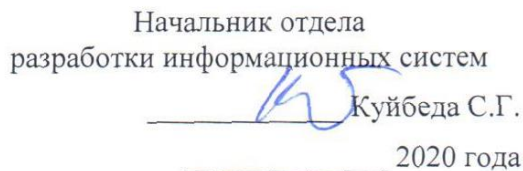 Начальник отдела
разработки информационных систем
Куйбеда С.Г.
2020 года